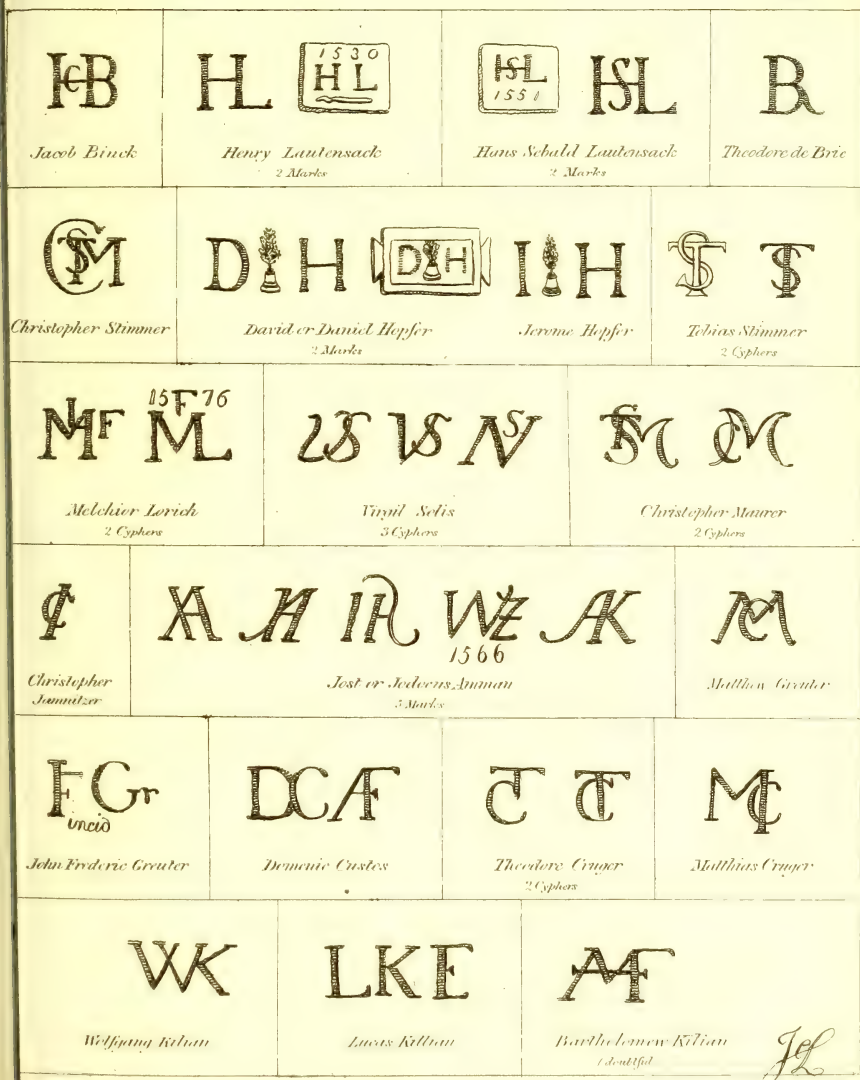 HCB
Jacob Binck
HL 1530 HL
Henry Lautensack
2 Marks
HSL 1551 HSL
Hans Sebald Lautensack
2 Marks
Theodore de Brie
Christopher Stimmer
D H D H
David or Daniel Hopfer
2 Marks
I H
Jerome Hopfer
ST ST
Tobias Stimmer
2 Cyphers
15 F 76
ML
Melchior Lorich
2 Cyphers
VS VS
Virgil Solis
3 Cyphers
Christopher Maurer
2 Cyphers
Christopher
Jamnitzer
WZ
1566
Jost or Jodocus Amman
5 Marks
Matthew Greuter
F Gr
incid
John Frederic Greuter
DCAF
Domenic Custos
CT CT
Theodore Cruger
2 Cyphers
MC
Matthias Cruger
WK
Wolfgang Kilian
LKE
Lucas Killian
Bartholomew Kilian
1 doubtful